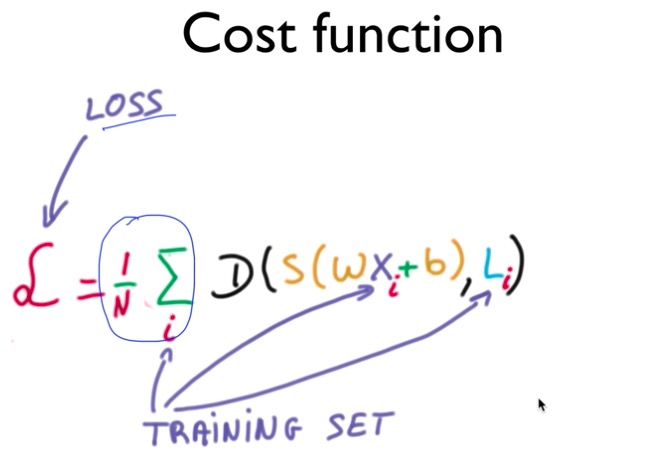 Cost function
LOSS
ℒ = 1/N Σ_i D(S(WX_i+b), L_i)
TRAINING SET